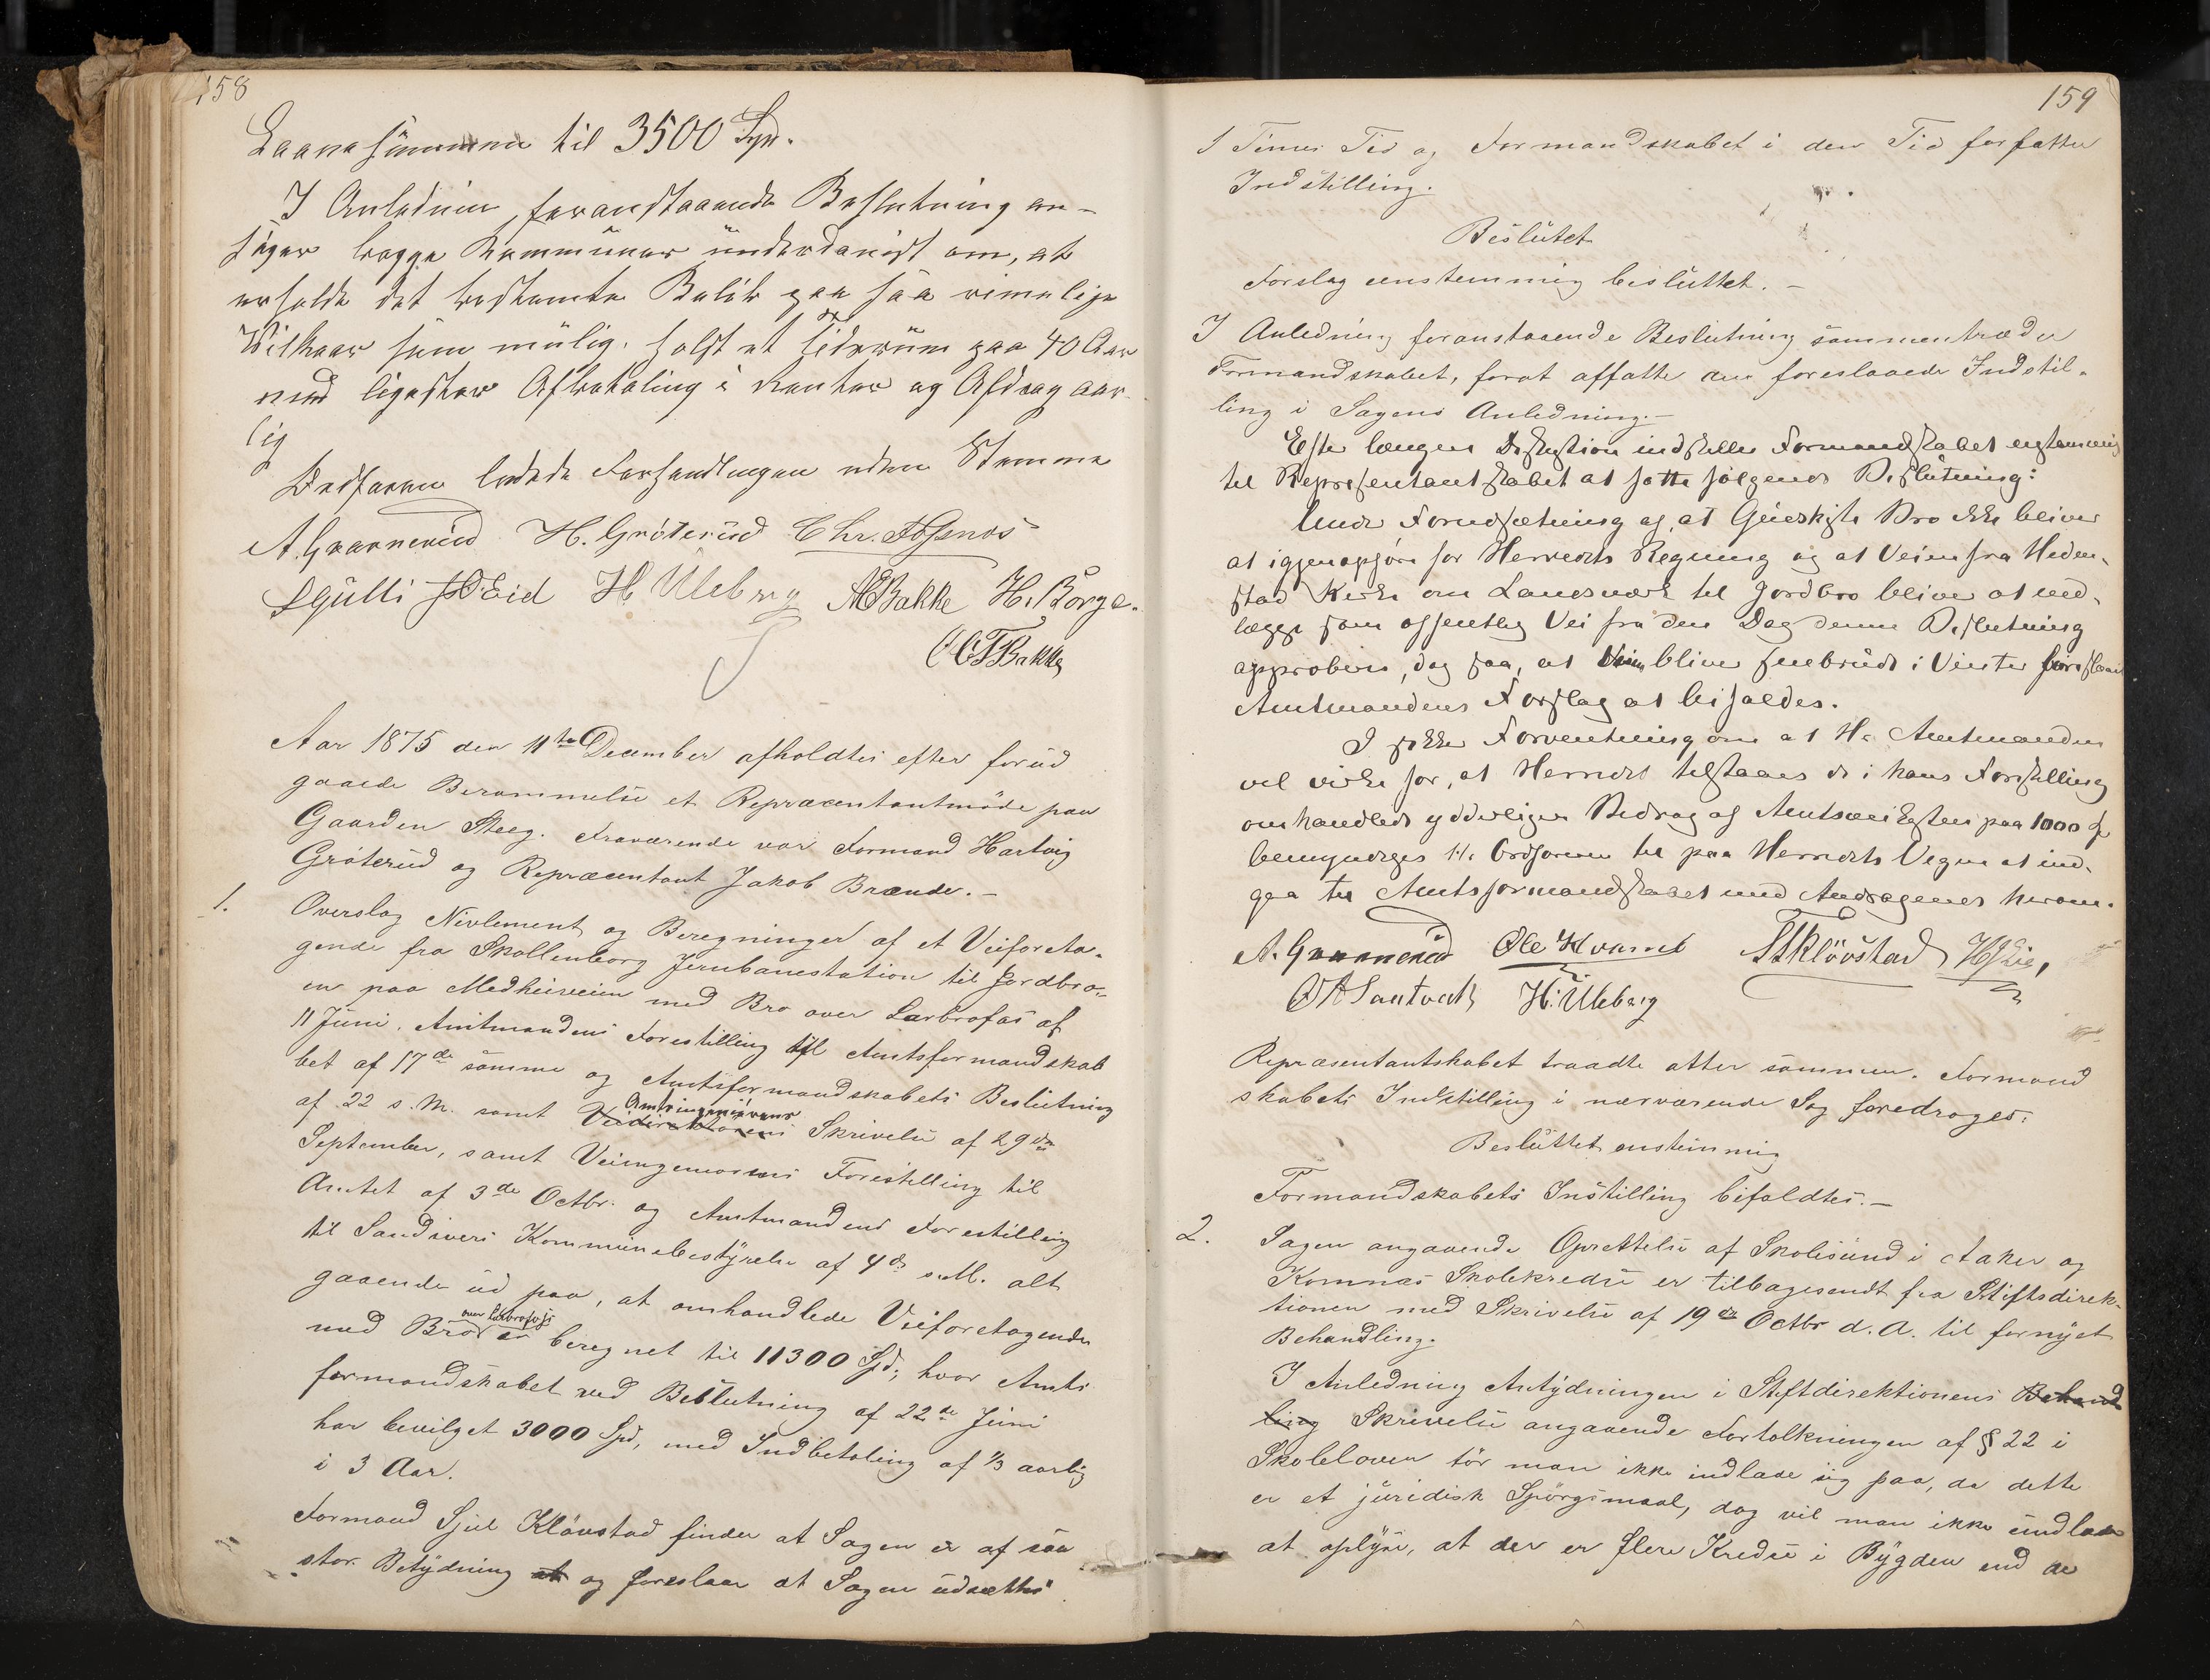 158
Laanesummen til 3500 Spd.
I Anledning foranstaaende Beslutning an-
søger begge Kommuner underdanigst om, at
erholde det bestemte Beløb paa saa rimelige
Vilkaar som mulig, helst et Tidsrum paa 40 Aar
med ligestor Afbetaling i Renter og Afdrag aar-
lig
Ordføreren ledede Forhandlingen uden Stemme
A. Gravnerud H. Gröterud Chr. Fossnæs
Gulli Eid H Uleberg Bakke H. Börge.
Bakke
Aar 1875 den 11te December afholdtes efter forud
gaaede Berammelse et Repræcentantmöde paa
Gaarden Steeg. Fraværende var Formand Hartvig
Gröterud og Repræcentant Jakob Brænde. -
1. Overslag Nivlement og Beregninger af et Veiforeta-
gende fra Skollenborg Jernbanestation til Jordbro-
en paa Medheiveien med Bro over Labrofos af
11 Juni. Amtmandens Forestilling til Amtsformandskab
bet af 17de samme og Amtsformandskabets Beslutning
af 22 s.M. samt Veidirektørens Amtsingeniörens Skrivelse af 29de
September, samt Veiingeniörens Forestilling til
Amtet af 3de Octbr. og Amtmandens Forestilling
til Sandsvers Kommunebestyrelse af 4de s.M. alt
gaaende ud paa, at omhandlede Veiforetagende
med Bro over Labrofos er beregnet til 11300 Spd; hvor Amts
formandskabet ved Beslutning af 22de Juni
har bevilget 3000 Spd, med Indbetaling af 1/3 aarlig
i 3 Aar.
Formand Sjul Klövstad finder at Sagen er af saa
stor Betydning at og foreslaar at Sagen udsættes
159
1 Times Tid og Formandskabet i den Tid forfatter
Indstilling.
Beslutet
Forslag eenstemmig besluttet. -
I Anledning foranstaaende Beslutning sammentræder
Formandskabet, forat affatte den foreslaaede Indstil-
ling i Sagens Anledning. -
Efter længere Diskution indstiller Formandskabet enstemmig
til Represententskabet at fatte følgende Beslutning:
Under Forudsætning af, at Bro ikke bliver
at igjenopføre for Herredets Regning og at Veien fra Heden-
stad Kirke om Landsværk til Jordbro bliver at ned-
lægge som offentlig Vei fra den Dag denne Beslutning
approberes, dog saa, at Veien bliver snebrudt i Vinter
Amtmandens Forslag at bifaldes.
I sikker Forventning om at Hr Amtmanden
vil virke for, at Herredet tilstaaes de i hans Forstilling
omhandlede yderligere Bidrag af Amtsveikassen paa 1000
bemyndiges Hr Ordføreren til paa Herredets Vegne at ind-
gaa til Amtsformandskabet med Andragende herom.
A. Gravnerud Ole Kvarnæs Klövstad Lie,
Santvedt H. Uleberg
Repræsentantskabet traadte atter sammen. Formand
skabets Indstilling i nærværende Sag foredroges:
Besluttet enstemmig
Formandskabets Instilling bifaldtes. -
2. Sagen angaaende Oprettelse af Skolesund i Aaker og
Komnæs Skolekredse er tilbagesendt fra Stiftsdirek-
tionen med Skrivelse af 19de Octbr d.A. til fornyet
Behandling.
I Anledning Antydningen i Stiftdirektionens Behand
ling Skrivelse angaaende Fortolkningen af § 22 i
Skoleloven tör man ikke indlade sig paa, da dette
er et juridisk Spörgsmaal, dog vil man ikke undlade
at oplyse, at der er flere Kredse i Bygden end de